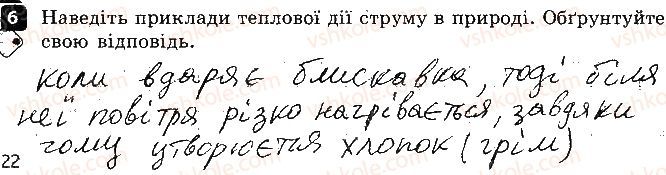 6 Наведіть приклади теплової дії струму в природі. Обґрунтуйте
свою відповідь.
коли вдаряє блискавка, тоді біля
неї повітря різко нагрівається, завдяки
чому утворюється хлопок (грім)
22